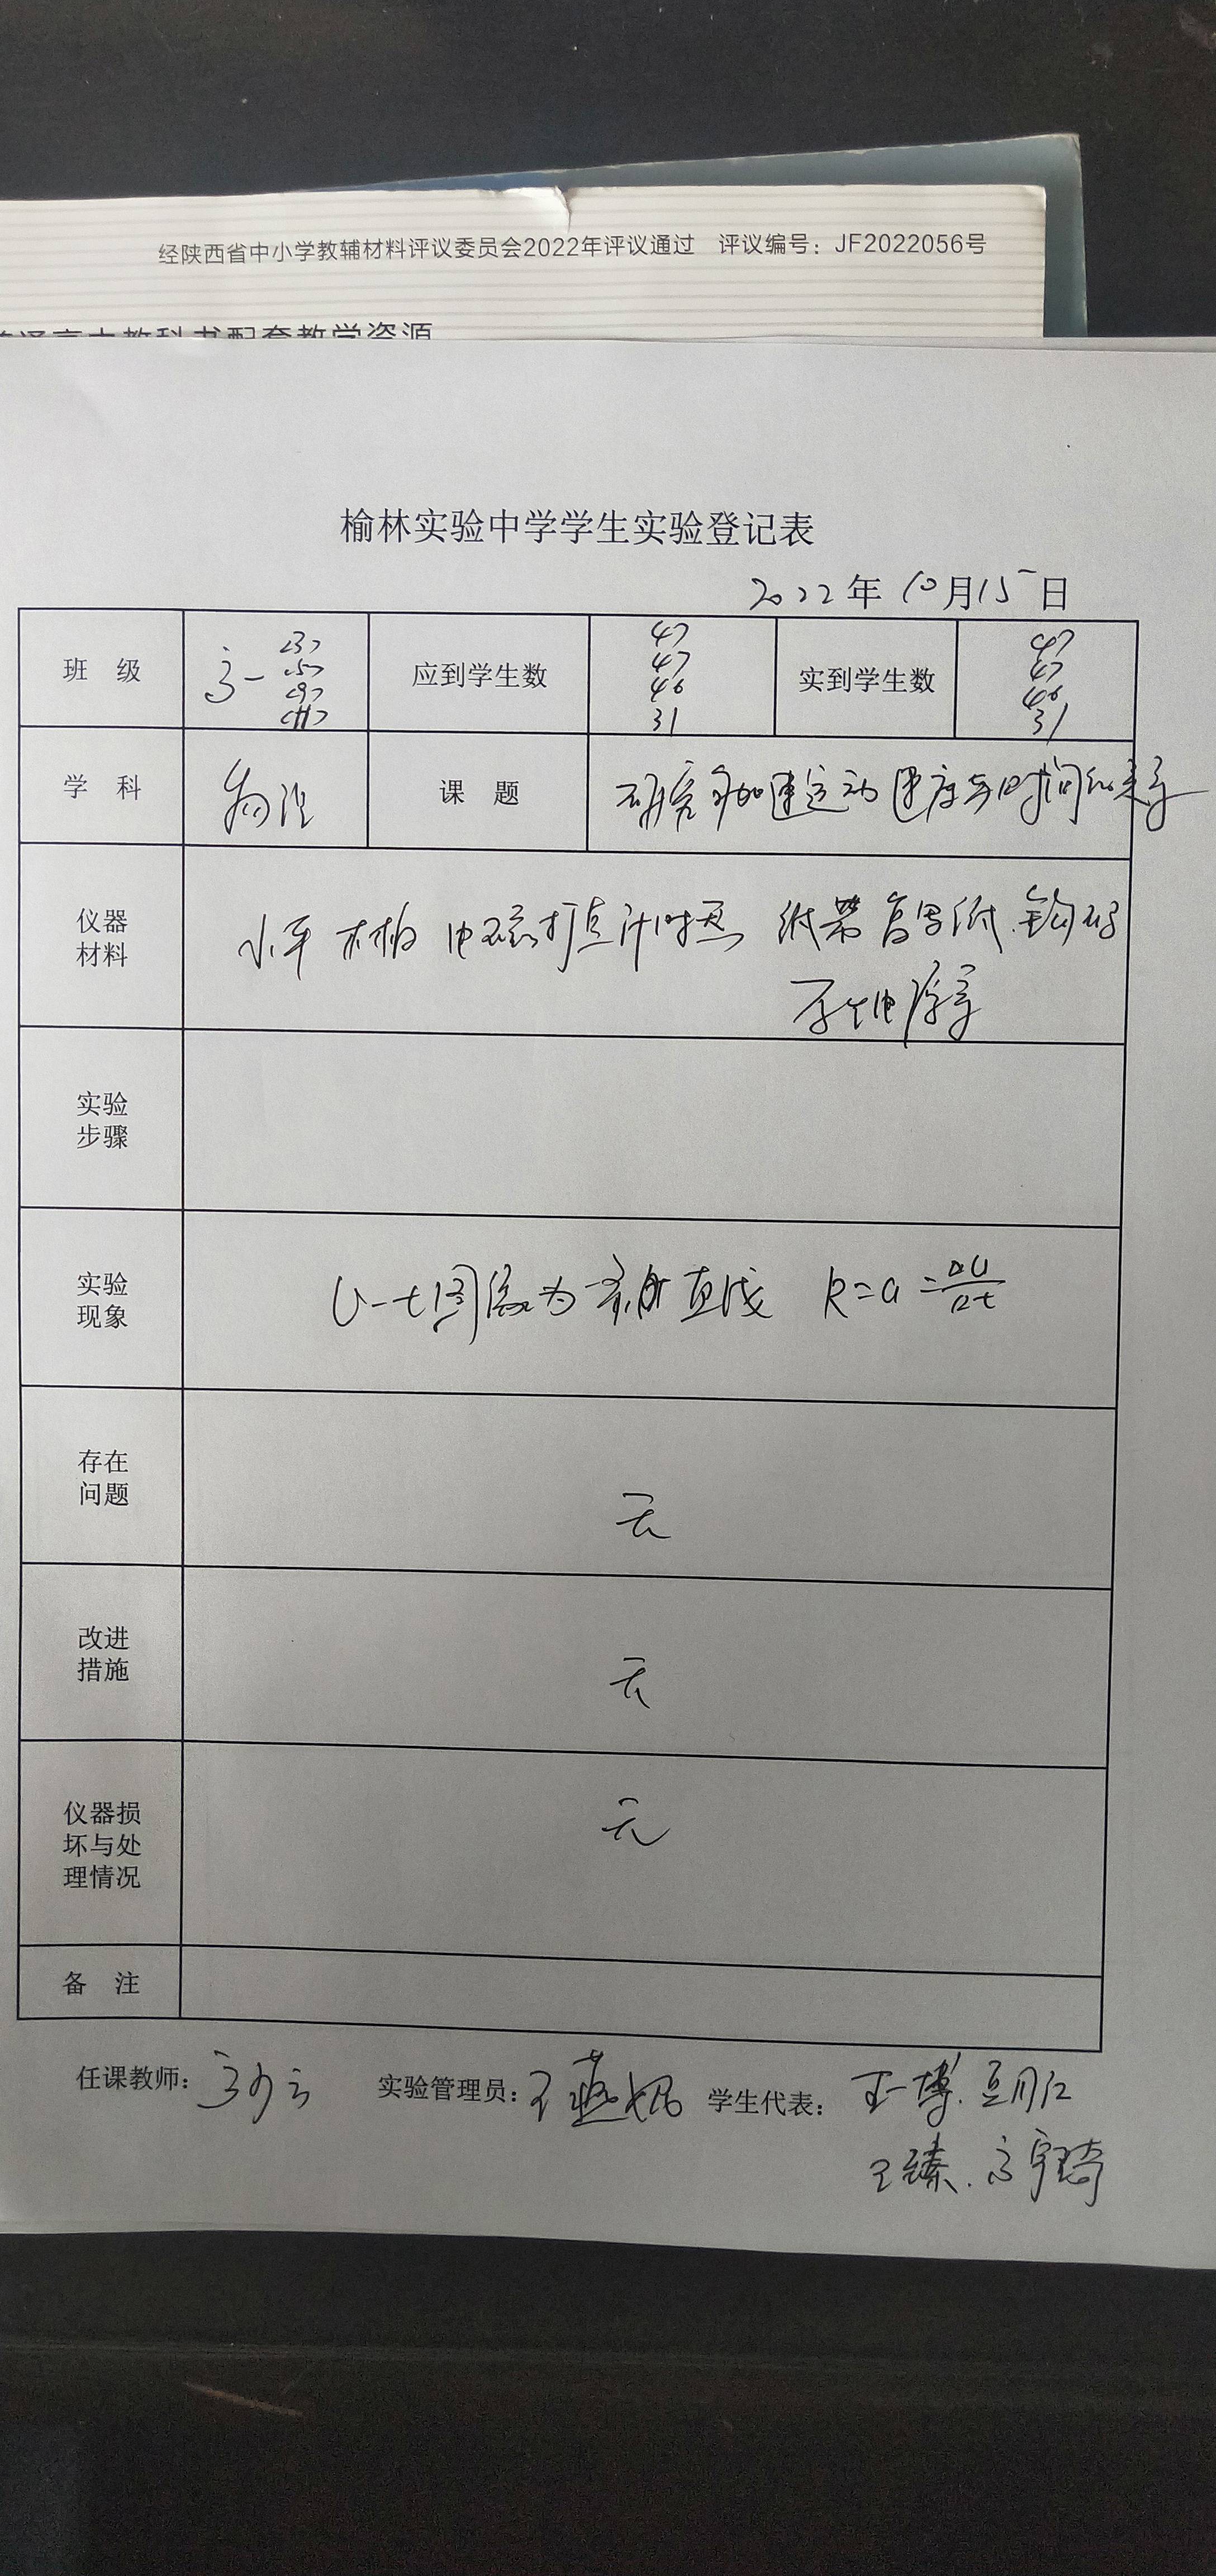 经陕西省中小学教辅材料评议委员会2022年评议通过 评议编号：JF2022056号
普通高中教科书配套教学资源
榆林实验中学学生实验登记表
2022年10月15日
班 级 高一 应到学生数 47 47 46 31 实到学生数 47 47 46 31
学 科 物理 课 题 研究匀加速运动速度与时间的关系
仪器材料 小车 木板 电磁打点计时器 纸带 复写纸 钩码
学生电源
实验步骤
实验现象 v-t图像为 直线 k=a=Δv/Δt
存在问题 无
改进措施 无
仪器损坏与处理情况 无
备 注
任课教师： 实验管理员：王燕妮 学生代表：王一博
王臻、高宇琦